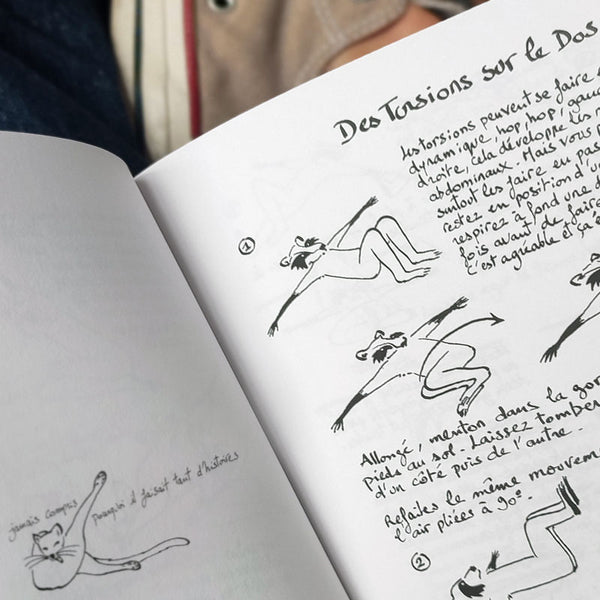 jamais compris
pourquoi il faisait tant d'histoires
Des Torsions sur le Dos
Les torsions peuvent se faire
dynamique, hop, hop, gauche
droite, cela développe les
abdominaux. Mais vous
surtout les faire en pas
restez en position d'un
respirez à fond une
fois avant de faire
c'est agréable et ça
1
Allongé, menton dans la gor
pieds au sol. Laissez tomber
d'un côté puis de l'autre.
Refaites le même mouvem
l'air pliées à 90°.
2